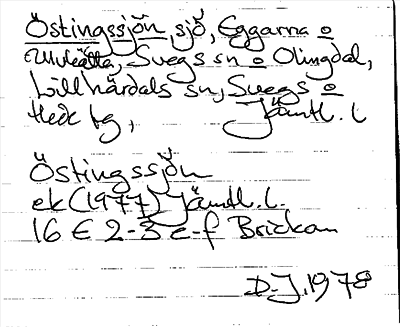 Östingssjön, sjö, Eggarna o
Ulvkälla, Svegs sn o Olingdal,
Lillhärdals sn, Svegs o
Hede tg, Jämtl. l
Östingssjön
ek (1977) Jämtl. l.
16 E 2-3 e-f Brickan
D.J. 1978